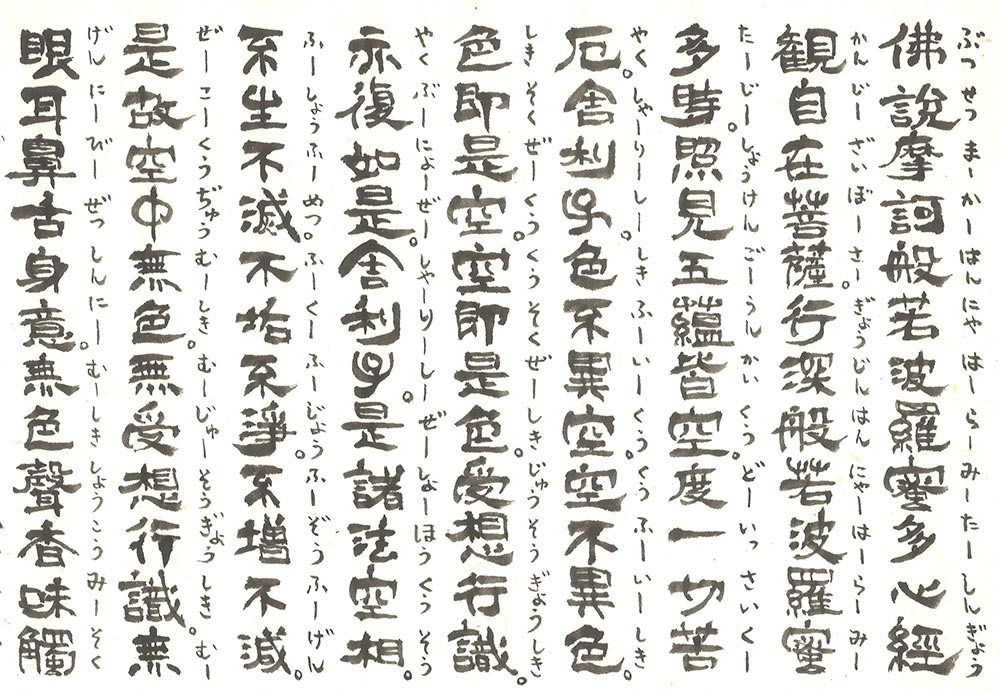 ぶつ せつ まー かー はん にゃ はー らー みー たー しん ぎょう
佛説摩訶般若波羅蜜多心經
かん じー ざい ぼー さー ぎょう じん はん にゃー はー らー みー
観自在菩薩。行深般若波羅蜜
たー じー しょう けん ごー うん かい くう どー いっ さい くー
多時。照見五蘊皆空。度一切苦
やく しゃー りー しー しき ふー いー くう くう ふー いー しき
厄。舎利子。色不異空。空不異色。
しき そく ぜー くう くう そく ぜー しき じゅう そう ぎょう しき
色即是空。空即是色。受想行識。
やく ぶー にょー ぜー しゃー りー しー ぜー しょー ほう くう そう
亦復如是。舎利子。是諸法空相。
ふー しょう ふー めつ ふー くー ふー じょう ふー ぞう ふー げん
不生不滅。不垢不淨。不増不減。
ぜー こー くう ぢゅう むー しき むー じゅー そう ぎょう しき むー
是故空中無色。無受想行識。無
げん にー びー ぜっ しん にー むー しき しょう こう みー そく
眼耳鼻舌身意。無色聲香味觸